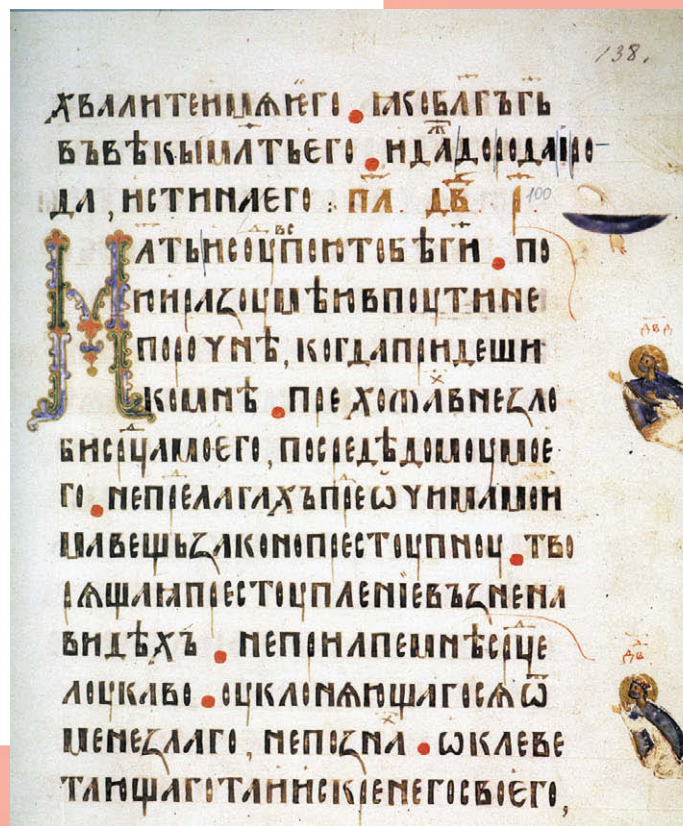 138.
хвалитеимѧѥго • ꙗкоблг҃ъг҃ь
въвѣкымлт҃ьего • идадородаіро
да , истинаего : пл҃ дв҃ р҃ 100
Млт҃ьисоуⷣпоютобѣги • по
юиразоумѣювпоутине
порочнѣ, когдапридеши
комнѣ • преⷯхожавнеꙁло
бисрⷣцамоего, посредѣдомоумое
го • непреⷣлагахъпреⷣѡчимамои
мавещьꙁаконопрестоупноу • тво
рѧщаꙗпрестоуплениевъꙁнена
видѣхъ • непоилпемнѣсрⷣце
лоукаво • оуклонѧющагосѧѿ
менеꙁлаго , непоꙁнаⷯ • ѡклеве
тающаготаиискренегосвоего,
двд
дв